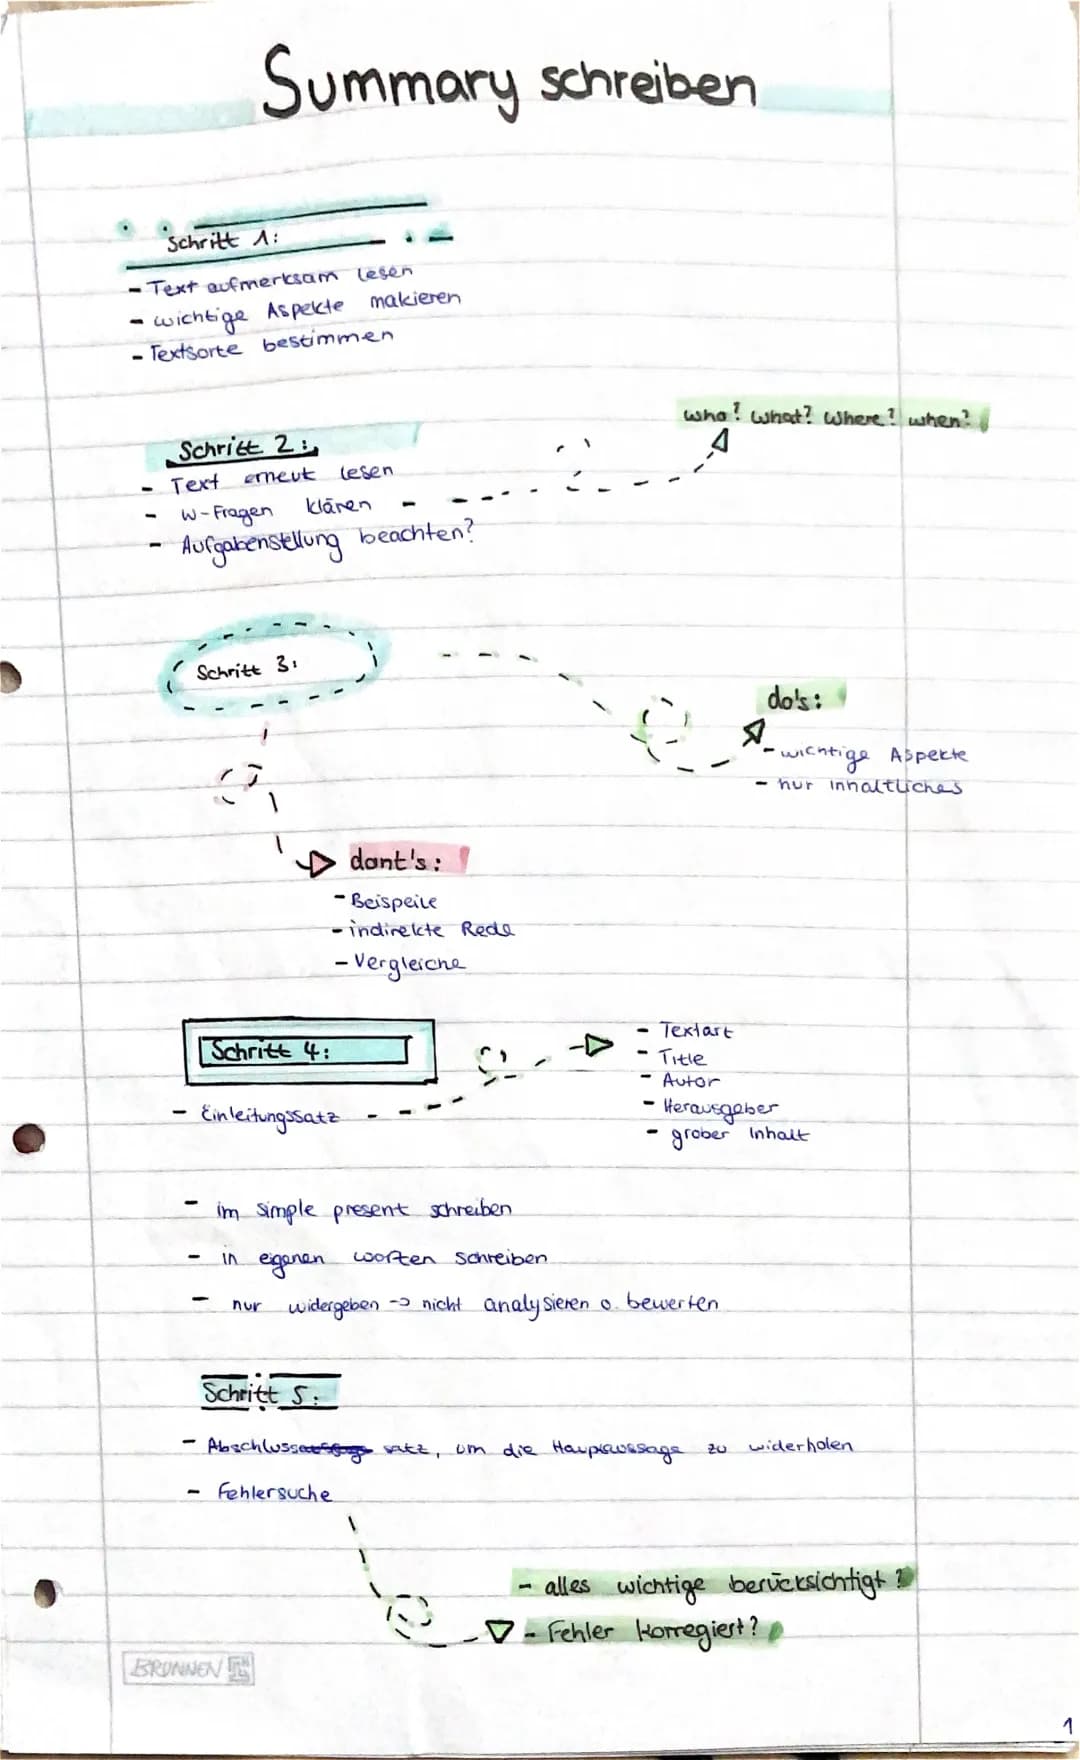 Summary schreiben
Schritt 1:
- Text aufmerksam lesen
- wichtige Aspekte makieren
- Textsorte bestimmen
who? what? where? when?
Schritt 2:
- Text erneut lesen
- w-Fragen klären
- Aufgabenstellung beachten?
Schritt 3:
do's:
- wichtige Aspekte
- nur inhaltliches
dont's:
- Beispeile
- indirekte Rede
- Vergleiche
Schritt 4:
- Einleitungssatz
- Textart
- Title
- Autor
- Herausgeber
- grober Inhalt
- im simple present schreiben
- in eigenen worten schreiben
- nur widergeben -> nicht analysieren o. bewerten
Schritt 5:
- Abschluss satz, um die Hauptaussage zu widerholen
- Fehlersuche
- alles wichtige berücksichtigt?
- Fehler korregiert?
BRUNNEN
1